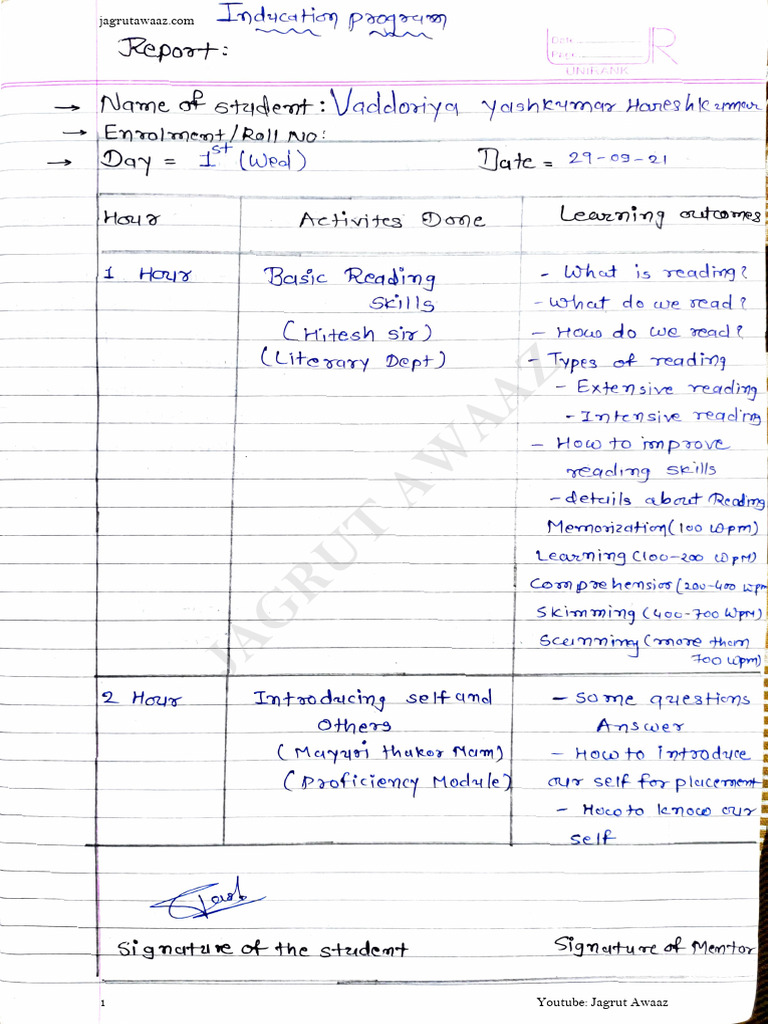 jagrutawaaz.com
Inducation program
Report:
Date
Page
R
UNIRANK
→ Name of student : Vaddoriya Yashkumar Hareshkumar
→ Enrolment/Roll No:
→ Day = 1st (Wed) Date = 29-09-21
Hour Activites Done Learning outcomes
1 Hour Basic Reading - What is reading?
Skills - What do we read?
(Hitesh sir) - How do we read?
(Literary Dept) - Types of reading
- Extensive reading
- Intensive reading
- How to improve
reading skills
- details about Reading
Memorization (100 wpm)
Learning (100-200 wpm)
Comprehension (200-400 wpm
Skimming (400-700 wpm)
Scanning (more them
700 wpm)
JAGRUT AWAAZ
2 Hour Introducing self and - Some questions
Others Answer
(Mayuri Thakor Mam) - How to introduce
(Proficiency Module) our self for placement
- How to know our
self
Signature of the student Signature of Mentor
1 Youtube: Jagrut Awaaz